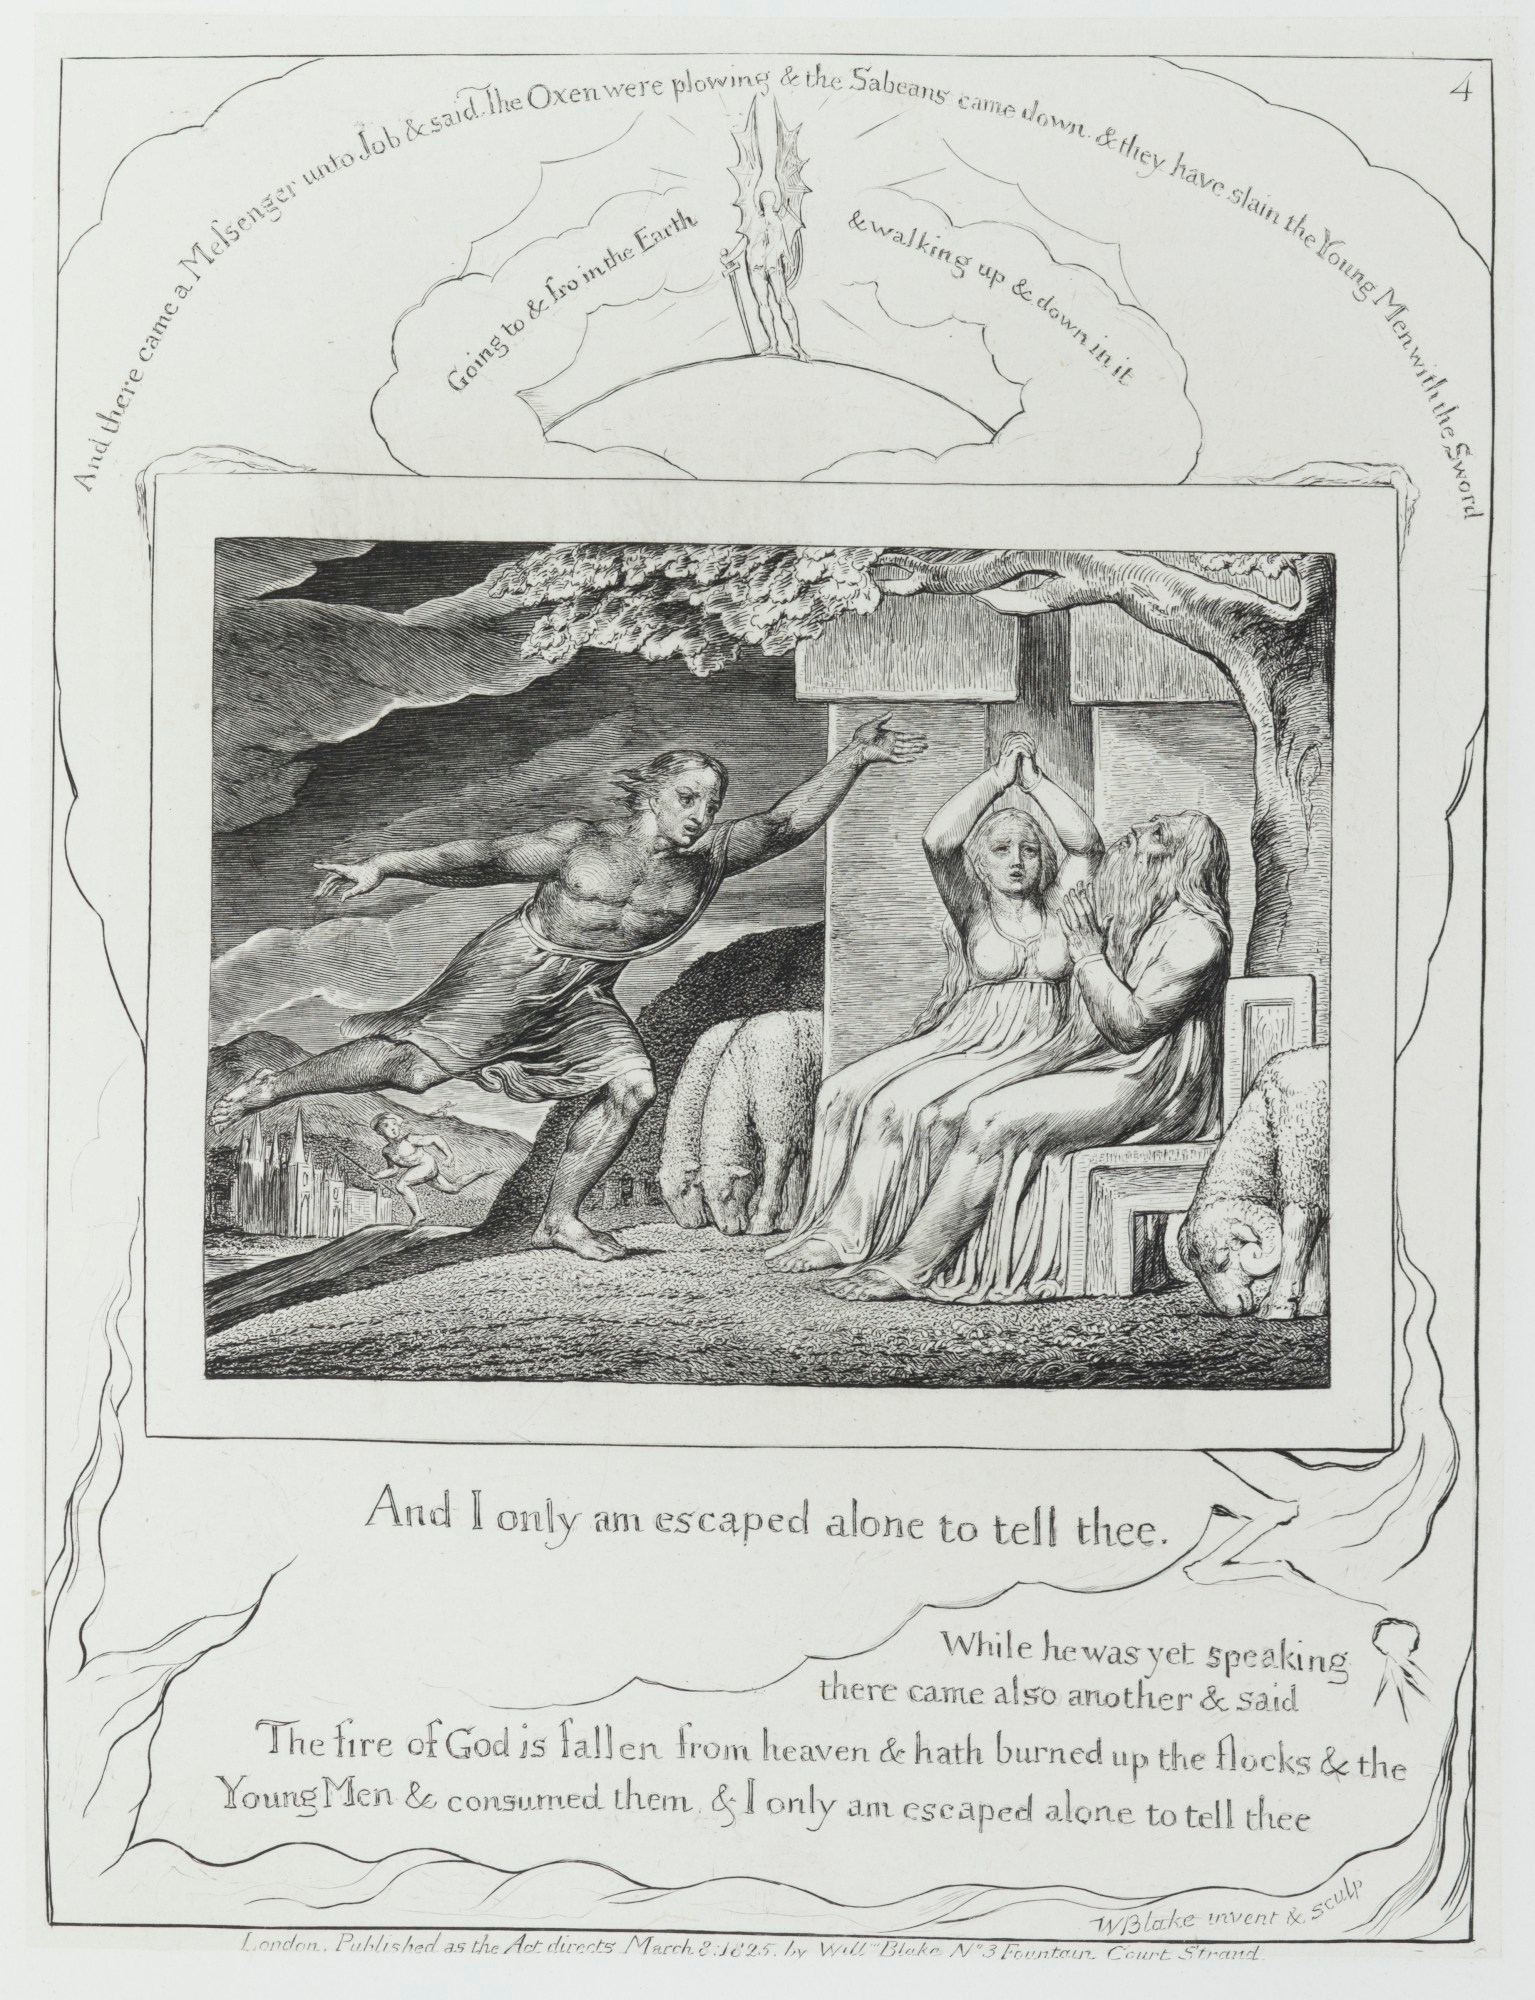 4
And there came a Meſsenger unto Job & said The Oxen were plowing & the Sabeans came down. & they have slain the Young Men with the Sword
Going to & fro in the Earth
& walking up & down in it
And I only am escaped alone to tell thee.
While he was yet speaking
there came also another & said
The fire of God is fallen from heaven & hath burned up the flocks & the
Young Men & consumed them & I only am escaped alone to tell thee
WBlake invent & sculp
London. Published as the Act directs March 8: 1825. by Will.m Blake No 3 Fountain Court Strand